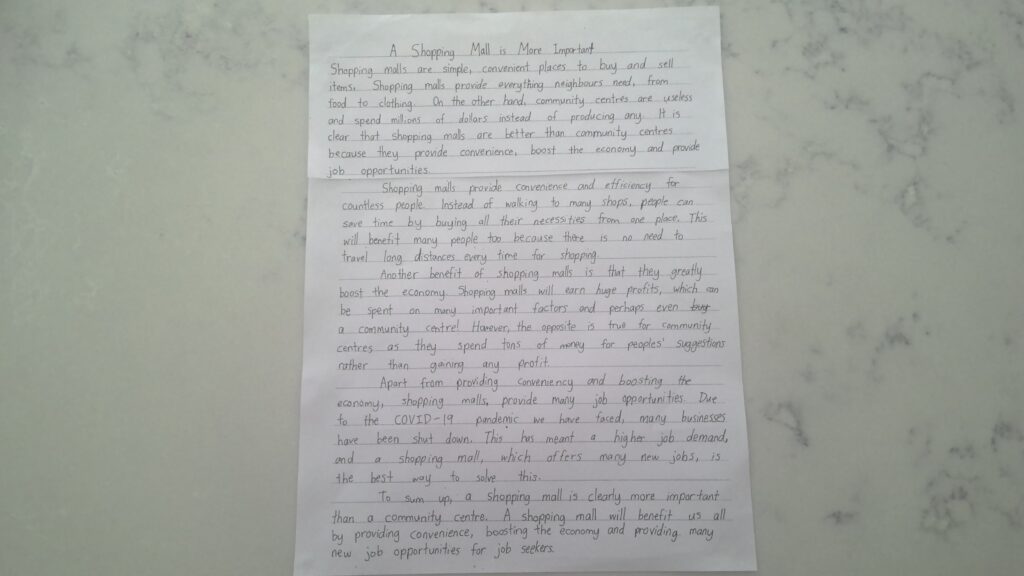 A Shopping Mall is More Important
Shopping malls are simple, convenient places to buy and sell
items. Shopping malls provide everything neighbours need, from
food to clothing. On the other hand, community centres are useless
and spend millions of dollars instead of producing any. It is
clear that shopping malls are better than community centres
because they provide convenience, boost the economy and provide
job opportunities.
Shopping malls provide convenience and efficiency for
countless people. Instead of walking to many shops, people can
save time by buying all their necessities from one place. This
will benefit many people too because there is no need to
travel long distances every time for shopping.
Another benefit of shopping malls is that they greatly
boost the economy. Shopping malls will earn huge profits, which can
be spent on many important factors and perhaps even buy
a community centre! However, the opposite is true for community
centres as they spend tons of money for peoples' suggestions
rather than gaining any profit.
Apart from providing conveniency and boosting the
economy, shopping malls, provide many job opportunities. Due
to the COVID-19 pandemic we have faced, many businesses
have been shut down. This has meant a higher job demand,
and a shopping mall, which offers many new jobs, is
the best way to solve this.
To sum up, a shopping mall is clearly more important
than a community centre. A shopping mall will benefit us all
by providing convenience, boosting the economy and providing many
new job opportunities for job seekers.